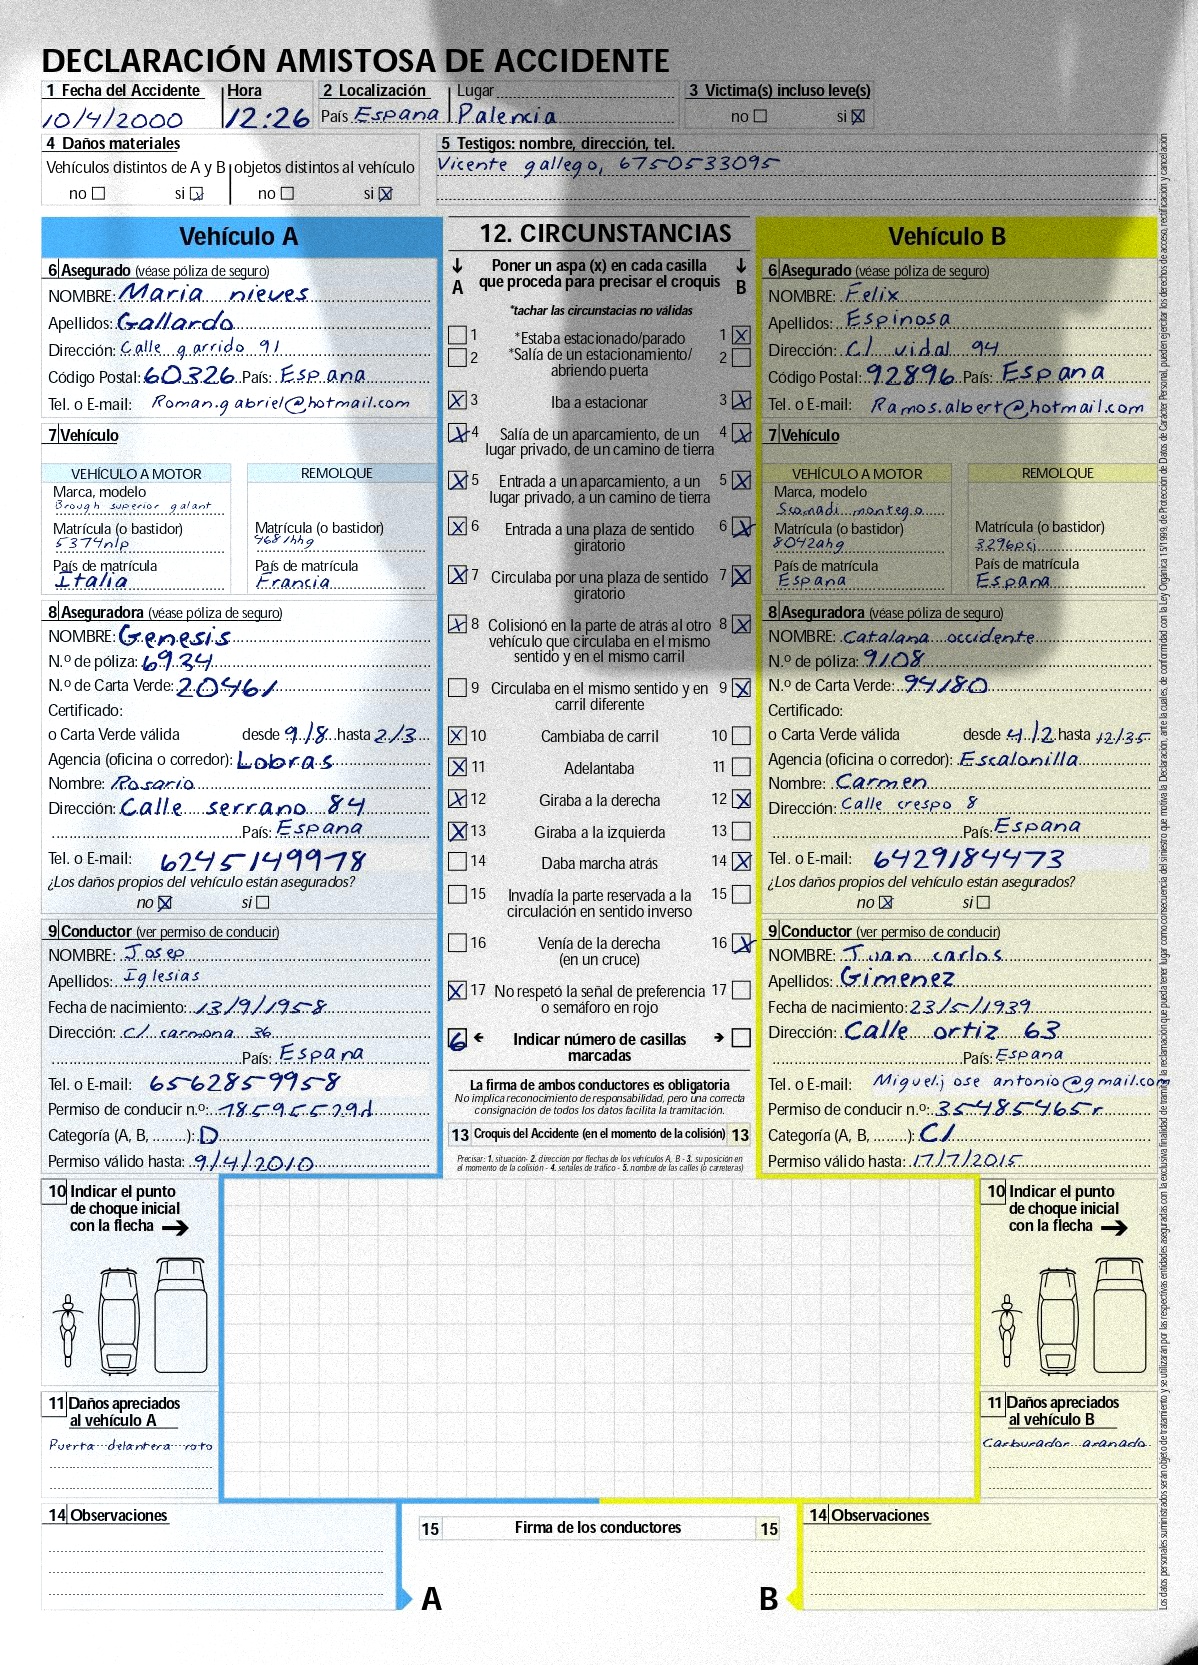 DECLARACIÓN AMISTOSA DE ACCIDENTE
1 Fecha del Accidente Hora 2 Localización Lugar 3 Victima(s) incluso leve(s)
10/4/2000 12:26 País Espana Palencia no ☐ si ☒
4 Daños materiales
Vehículos distintos de A y B objetos distintos al vehículo
no ☐ si ☒ no ☐ si ☒
5 Testigos: nombre, dirección, tel.
Vicente gallego, 6750533095
Vehículo A
6 Asegurado (véase póliza de seguro)
NOMBRE: Maria nieves
Apellidos: Gallardo
Dirección: Calle garrido 91
Código Postal: 60326 País: Espana
Tel. o E-mail: Roman.gabriel@hotmail.com
7 Vehículo
VEHÍCULO A MOTOR REMOLQUE
Marca, modelo
Brough superior galant
Matrícula (o bastidor) Matrícula (o bastidor)
5374nlp 4681hhg
País de matrícula País de matrícula
Italia Francia
8 Aseguradora (véase póliza de seguro)
NOMBRE: Genesis
N.º de póliza: 6934
N.º de Carta Verde: 20461
Certificado:
o Carta Verde válida desde 9/8 hasta 2/3
Agencia (oficina o corredor): Lobras
Nombre: Rosario
Dirección: Calle serrano 84
País: Espana
Tel. o E-mail: 6245149978
¿Los daños propios del vehículo están asegurados?
no ☒ si ☐
9 Conductor (ver permiso de conducir)
NOMBRE: Josep
Apellidos: Iglesias
Fecha de nacimiento: 13/9/1958
Dirección: C/ carmona 36
País: Espana
Tel. o E-mail: 6562859958
Permiso de conducir n.º: 18595529d
Categoría (A, B, ........): D
Permiso válido hasta: 9/4/2010
12. CIRCUNSTANCIAS
A Poner un aspa (x) en cada casilla que proceda para precisar el croquis B
*tachar las circunstacias no válidas
☐ 1 *Estaba estacionado/parado 1 ☒
☐ 2 *Salía de un estacionamiento/ abriendo puerta 2 ☐
☒ 3 Iba a estacionar 3 ☒
☒ 4 Salía de un aparcamiento, de un lugar privado, de un camino de tierra 4 ☒
☒ 5 Entrada a un aparcamiento, a un lugar privado, a un camino de tierra 5 ☒
☒ 6 Entrada a una plaza de sentido giratorio 6 ☒
☒ 7 Circulaba por una plaza de sentido giratorio 7 ☒
☒ 8 Colisionó en la parte de atrás al otro vehículo que circulaba en el mismo sentido y en el mismo carril 8 ☒
☐ 9 Circulaba en el mismo sentido y en carril diferente 9 ☒
☒ 10 Cambiaba de carril 10 ☐
☒ 11 Adelantaba 11 ☐
☒ 12 Giraba a la derecha 12 ☒
☒ 13 Giraba a la izquierda 13 ☐
☐ 14 Daba marcha atrás 14 ☒
☐ 15 Invadía la parte reservada a la circulación en sentido inverso 15 ☐
☐ 16 Venía de la derecha (en un cruce) 16 ☒
☒ 17 No respetó la señal de preferencia o semáforo en rojo 17 ☐
6 Indicar número de casillas marcadas
La firma de ambos conductores es obligatoria
No implica reconocimiento de responsabilidad, pero una correcta
consignación de todos los datos facilita la tramitación.
13 Croquis del Accidente (en el momento de la colisión) 13
Precisar: 1. situación- 2. dirección por flechas de los vehículos A, B - 3. su posición en
el momento de la colisión - 4. señales de tráfico - 5. nombre de las calles (o carreteras)
Vehículo B
6 Asegurado (véase póliza de seguro)
NOMBRE: Felix
Apellidos: Espinosa
Dirección: C/ vidal 94
Código Postal: 92896 País: Espana
Tel. o E-mail: Ramos.albert@hotmail.com
7 Vehículo
VEHÍCULO A MOTOR REMOLQUE
Marca, modelo
Scomadi montego
Matrícula (o bastidor) Matrícula (o bastidor)
8042ahg 3296pcj
País de matrícula País de matrícula
Espana Espana
8 Aseguradora (véase póliza de seguro)
NOMBRE: Catalana occidente
N.º de póliza: 9108
N.º de Carta Verde: 94180
Certificado:
o Carta Verde válida desde 4/2 hasta 12/35
Agencia (oficina o corredor): Escalonilla
Nombre: Carmen
Dirección: Calle crespo 8
País: Espana
Tel. o E-mail: 6429184473
¿Los daños propios del vehículo están asegurados?
no ☒ si ☐
9 Conductor (ver permiso de conducir)
NOMBRE: Juan carlos
Apellidos: Gimenez
Fecha de nacimiento: 23/5/1939
Dirección: Calle ortiz 63
País: Espana
Tel. o E-mail: Miguel.jose antonio@gmail.com
Permiso de conducir n.º: 35485465r
Categoría (A, B, ........): C1
Permiso válido hasta: 17/7/2015
10 Indicar el punto
de choque inicial
con la flecha
11 Daños apreciados
al vehículo A
Puerta delantera roto
10 Indicar el punto
de choque inicial
con la flecha
11 Daños apreciados
al vehículo B
Carburador aranado
14 Observaciones
15 Firma de los conductores 15
A B
14 Observaciones